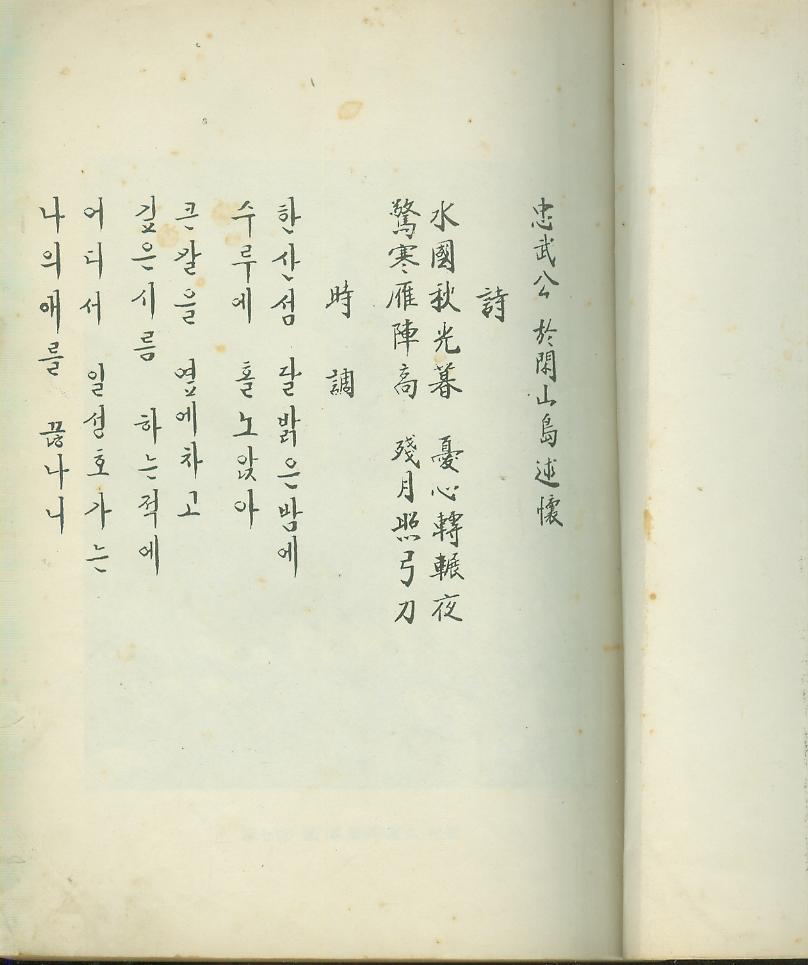 忠武公 於閑山島述懷
詩
水國秋光暮 憂心轉輾夜
驚寒雁陣高 殘月照弓刀
時調
한산섬 달밝은밤에
수루에 홀노앉아
큰칼을 옆에차고
깊은시름 하는적에
어디서 일성호가는
나의애를 끊나니